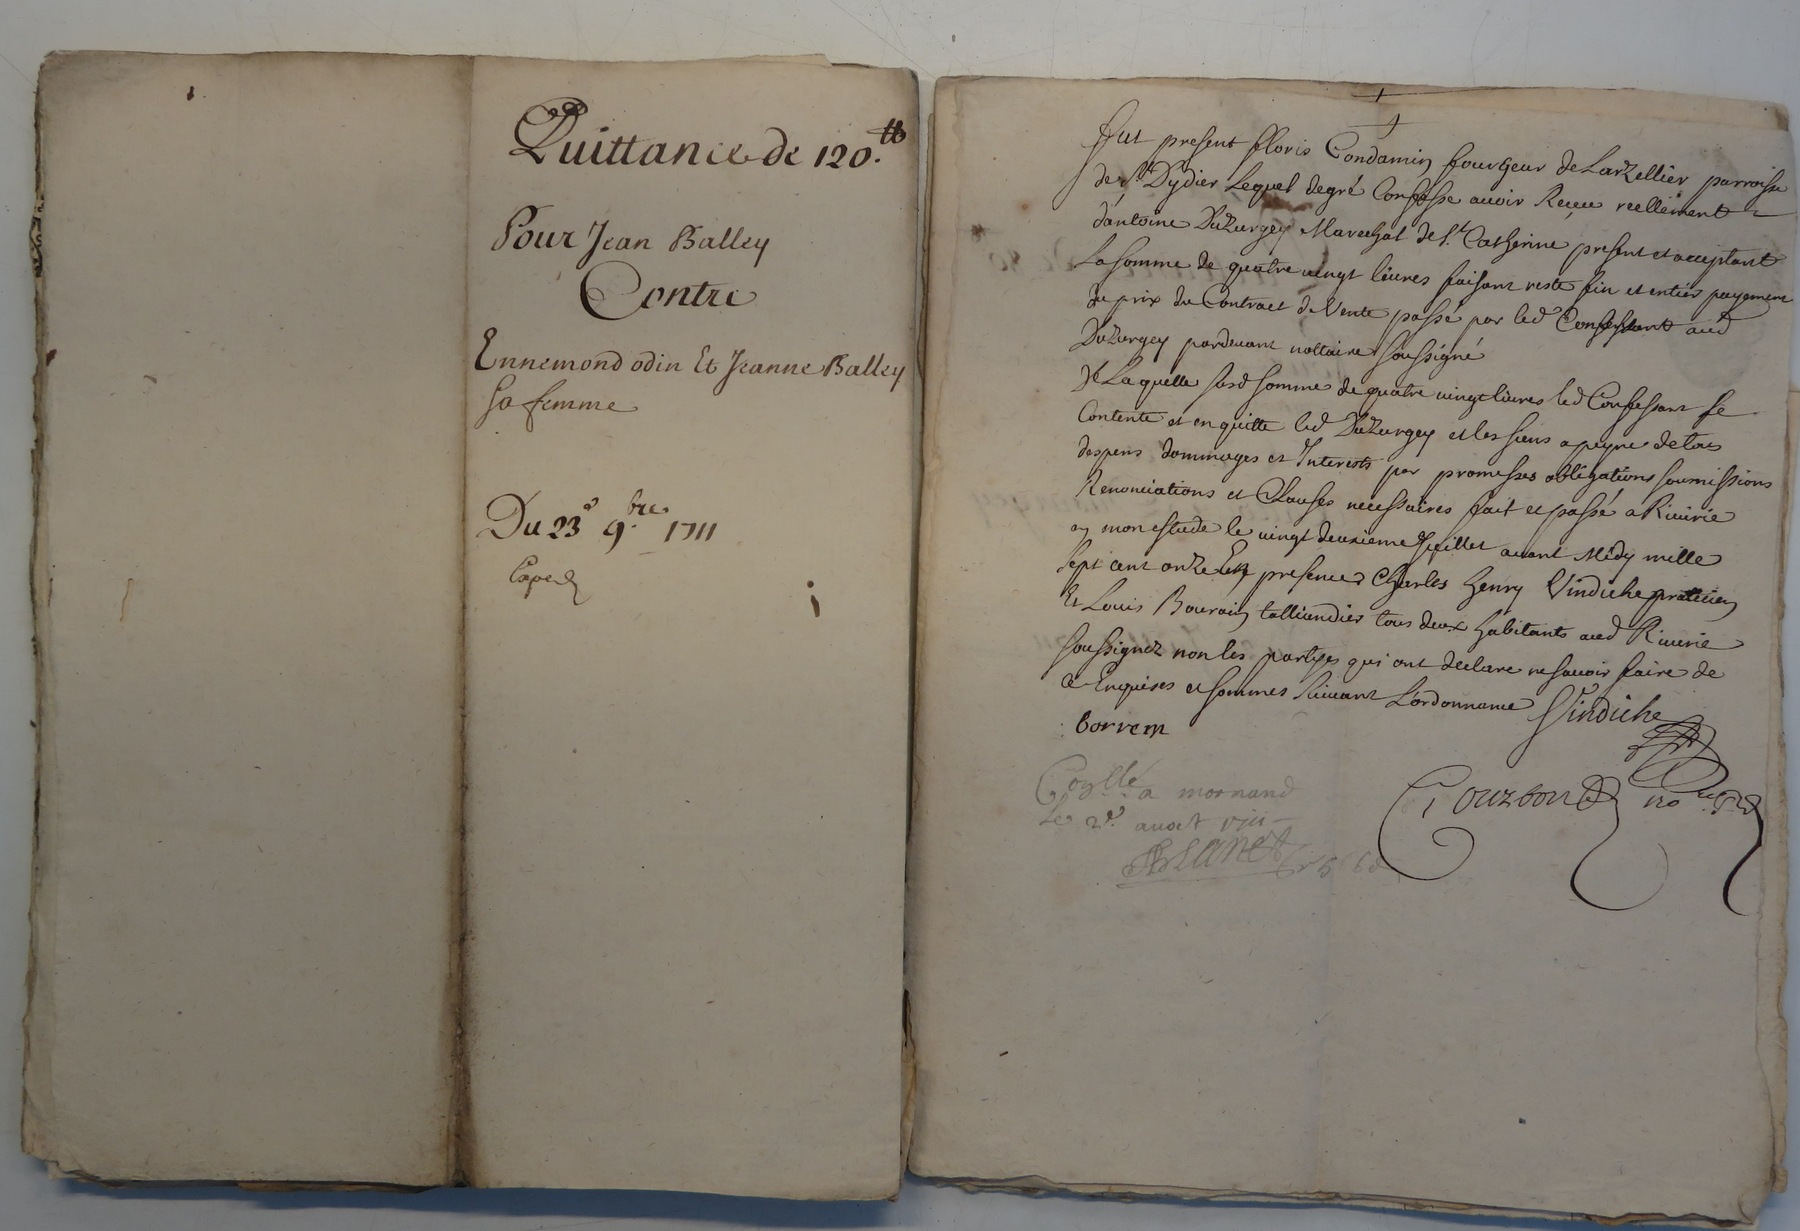 Quittance de 120.tt
Pour Jean Balley
Contre
Ennemond odin Et Jeanne Balley
sa femme
Du 23e 9.bre 1711
Exped
fut present floris Condamin fourgeur de Larzellier parroisse
de St Dydier Lequel degré Confesse auoir Receu reellement
dantoine DuZurgey Marechal de St Catherine present et acceptant
La somme de quatre uingt liures faisant reste fin et entier payement
du prix du Contract de Vente passé par led Confessant aud
DuZurgey pardeuant nottaire soussigné
De Laquelle susd somme de quatre uingt liures led Confessant se
Contente et en quitte led DuZurgey et les siens a peyne de tous
despens dommages et Interests par promesses obligations soumissions
Renonciations et Clauses necessaires fait et passé a Riuirie
en mon estude le uingt deuxieme Juillet auant Midy mille
sept cent onze En presence Charles Henry Vindiche praticien
Et Louis Bourain talliandier tous deux habitants aud Riuirie
soussignez non les partyes qui ont declare ne sauoir faire de
ce Enquises et sommes suiuant L'ordonnance Vindiche
borrem
a mornand
Le 2e. aoust